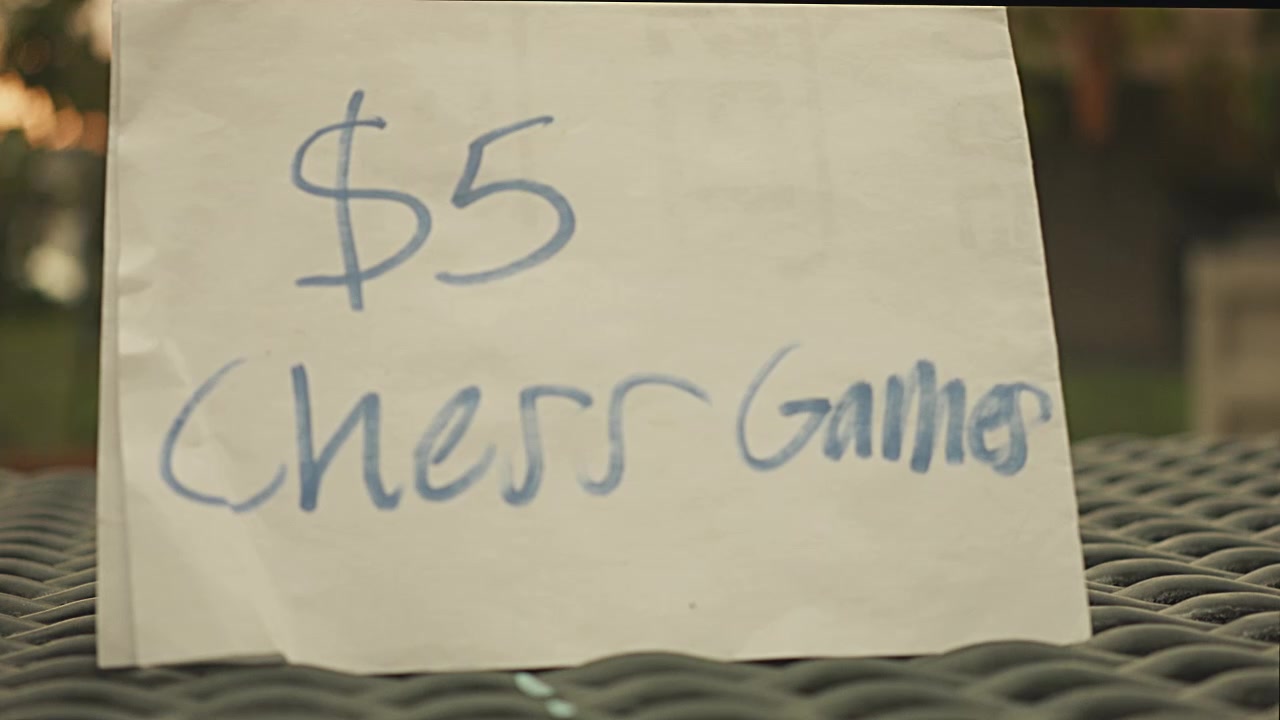 $5
Chess Games